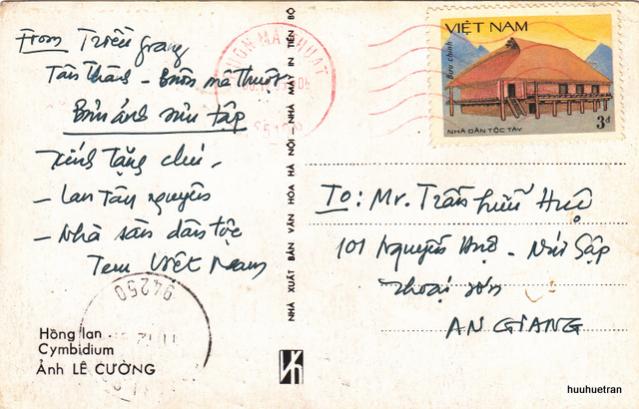 From Triều Giang
Tân Thành - Buôn mã thuột
Bưu ảnh sưu tập
Kính tặng chú,
- Lan Tây nguyên
- Nhà sàn dân tộc
Tem Việt Nam
94250
Hồng lan
Cymbidium
Ảnh LÊ CƯỜNG
NHÀ XUẤT BẢN VĂN HÓA HÀ NỘI - NHÀ MÁY IN TIẾN BỘ
BUÔN MA THUỘT
VIỆT NAM
Bưu chính
NHÀ DÂN TỘC TÀY
3đ
To: Mr. Trần Hữu Huệ
101 Nguyễn Huệ - Núi Sập
Thoại Sơn
AN GIANG
huuhuetran